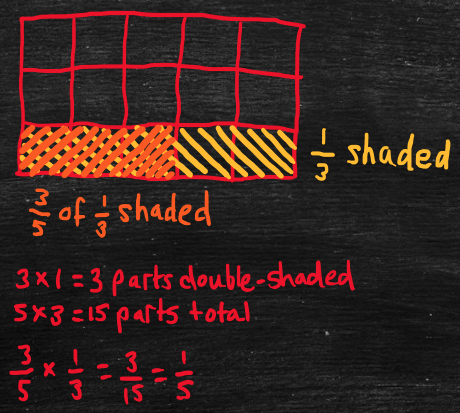 1/3 shaded
3/5 of 1/3 shaded
3 × 1 = 3 parts double-shaded
5 × 3 = 15 parts total
3/5 × 1/3 = 3/15 = 1/5